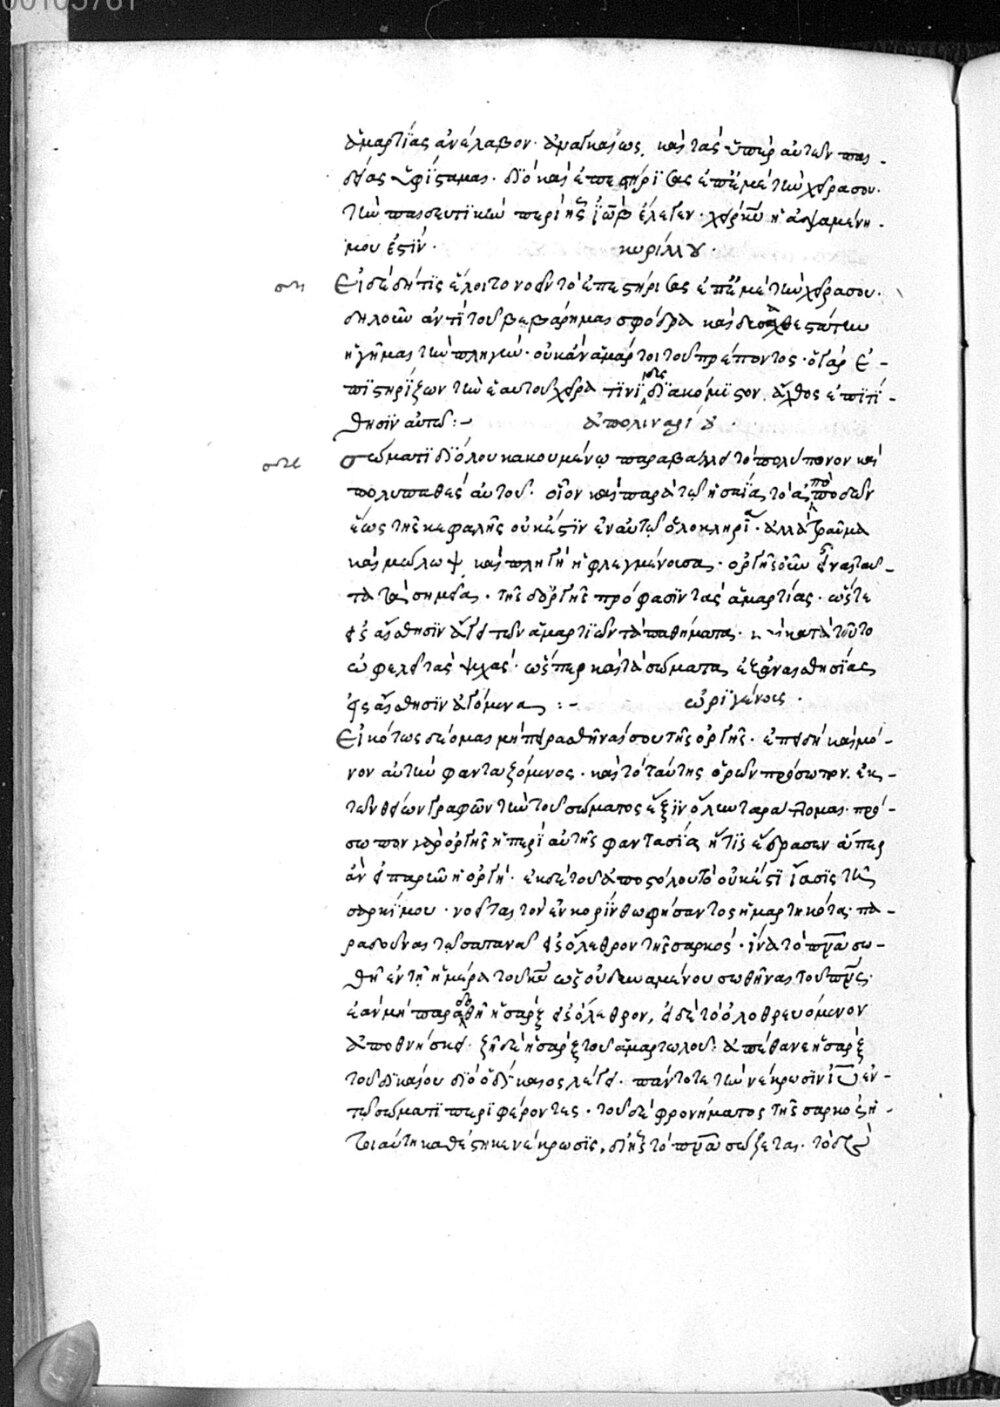 00105761
ἁμαρτίας ἀνέλαβον. ἀναγκαίως καὶ τὰς ὑπὲρ αὐτῶν παι-
δείας ὑφίσταμαι. διὸ καὶ ἐπεστήριξας ἐπ' ἐμὲ τὴν χεῖρά σου.
τὴν παιδευτικὴν περὶ ἧς ἰὼβ ἔλεγεν. χεὶρ κυ ἡ ἁψαμένη
μου ἐστίν. κυρίλλου.
Εἰ δὲ δή τις ἕλοιτο νοεῖν τὸ ἐπεστήριξας ἐπ' ἐμὲ τὴν χεῖρά σου.
δηλοῦν ἀντὶ τοῦ βεβάρημαι σφόδρα καὶ
ἥγημαι τῶν πληγῶν. οὐκ ἂν ἁμάρτοι τοῦ πρέποντος. ὁ γὰρ ἐ-
πιστηρίζων τὴν ἑαυτοῦ χεῖρα τινὶ ἄχθος ἐπιτί-
θησιν αὐτῷ :- ἀπολιναρίου.
σώματι διόλου κακουμένῳ παραβάλλει τὸ πολύπονον καὶ
πολυπαθὲς αὐτοῦ. οἷον καὶ παρὰ τῷ ἡσαΐᾳ τὸ ἀπὸ ποδῶν
ἕως τῆς κεφαλῆς οὐκ ἔστιν ἐν αὐτῷ ὁλοκληρία. ἀλλὰ τραῦμα
καὶ μώλωψ καὶ πληγὴ ἡ φλεγμαίνουσα. ὀργῆς οὖν εἶναι ταῦ-
τα τὰ σημεῖα. τῆς δὲ ὀργῆς πρόφασιν τὰς ἁμαρτίας. ὥστε
εἰς αἴσθησιν ἄγει τῶν ἁμαρτιῶν τὰ παθήματα. κατὰ τοῦτο
ὠφελεῖ τὰς ψυχάς. ὥσπερ καὶ τὰ σώματα ἐξ ἀναισθησίας
εἰς αἴσθησιν ἀγόμενα :- ὠριγένους.
Εἰκότως δέομαι μὴ πειραθῆναί σου τῆς ὀργῆς. ἐπειδὴ καὶ μό-
νον αὐτὴν φανταζόμενος. καὶ τὸ ταύτης ὁρῶν πρόσωπον. ἐκ
τῶν θείων γραφῶν τὴν τοῦ σώματος ἕξιν ὅλην ταράττομαι. πρό-
σωπον γὰρ ὀργῆς ἡ περὶ αὐτῆς φαντασία ἥτις ἔδρασεν ἅπερ
ἂν ἐπαρῶν ἡ ὀργή. ἐκ δὲ τοῦ ἀποστόλου τὸ οὐκ ἔστι ἴασις τῇ
σαρκί μου. νοεῖται τὸν ἐν κορίνθῳ φήσαντος ἡμαρτηκότα. πα-
ραδοῦναι τῷ σατανᾷ εἰς ὄλεθρον τῆς σαρκός. ἵνα τὸ πνα σω-
θῇ ἐν τῇ ἡμέρα τοῦ κυ ὡς οὐ δυναμένου σωθῆναι τοῦ πνς.
ἐὰν μὴ παραδοθῇ ἡ σὰρξ εἰς ὄλεθρον, εἰ δὲ τὸ ὀλοθρευόμενον
ἀποθνήσκει. ζῇ δὲ ἡ σὰρξ τοῦ ἁμαρτωλοῦ. ἀπέθανε ἡ σὰρξ
τοῦ δικαίου διὸ ὁ δίκαιος λέγει. πάντοτε τὴν νέκρωσιν ιυ ἐν
τῷ σώματι περιφέροντες. τοῦ δὲ φρονήματος τῆς σαρκὸς ἡ
τοιαύτη καθέστηκε νέκρωσις, δι' ἧς τὸ πνα σώζεται.